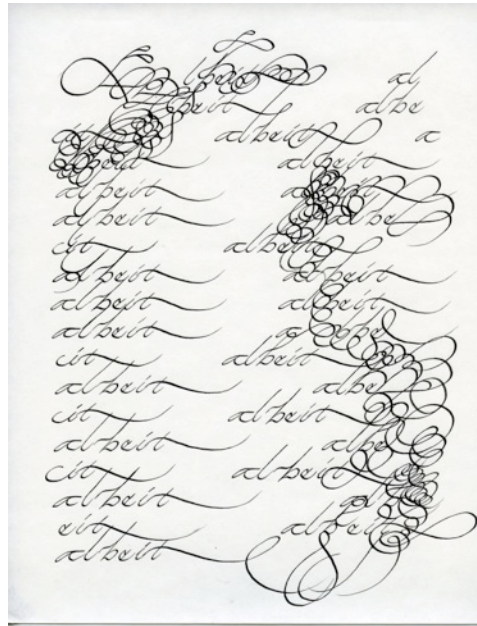 lbeit al
beit albe
albeit a
albeit albeit
albeit albeit
albeit albe
eit albeit
albeit albeit
albeit albeit
albeit albe
eit albeit
albeit albe
eit albeit
albeit albe
eit albeit
albeit
eit albeit
albeit